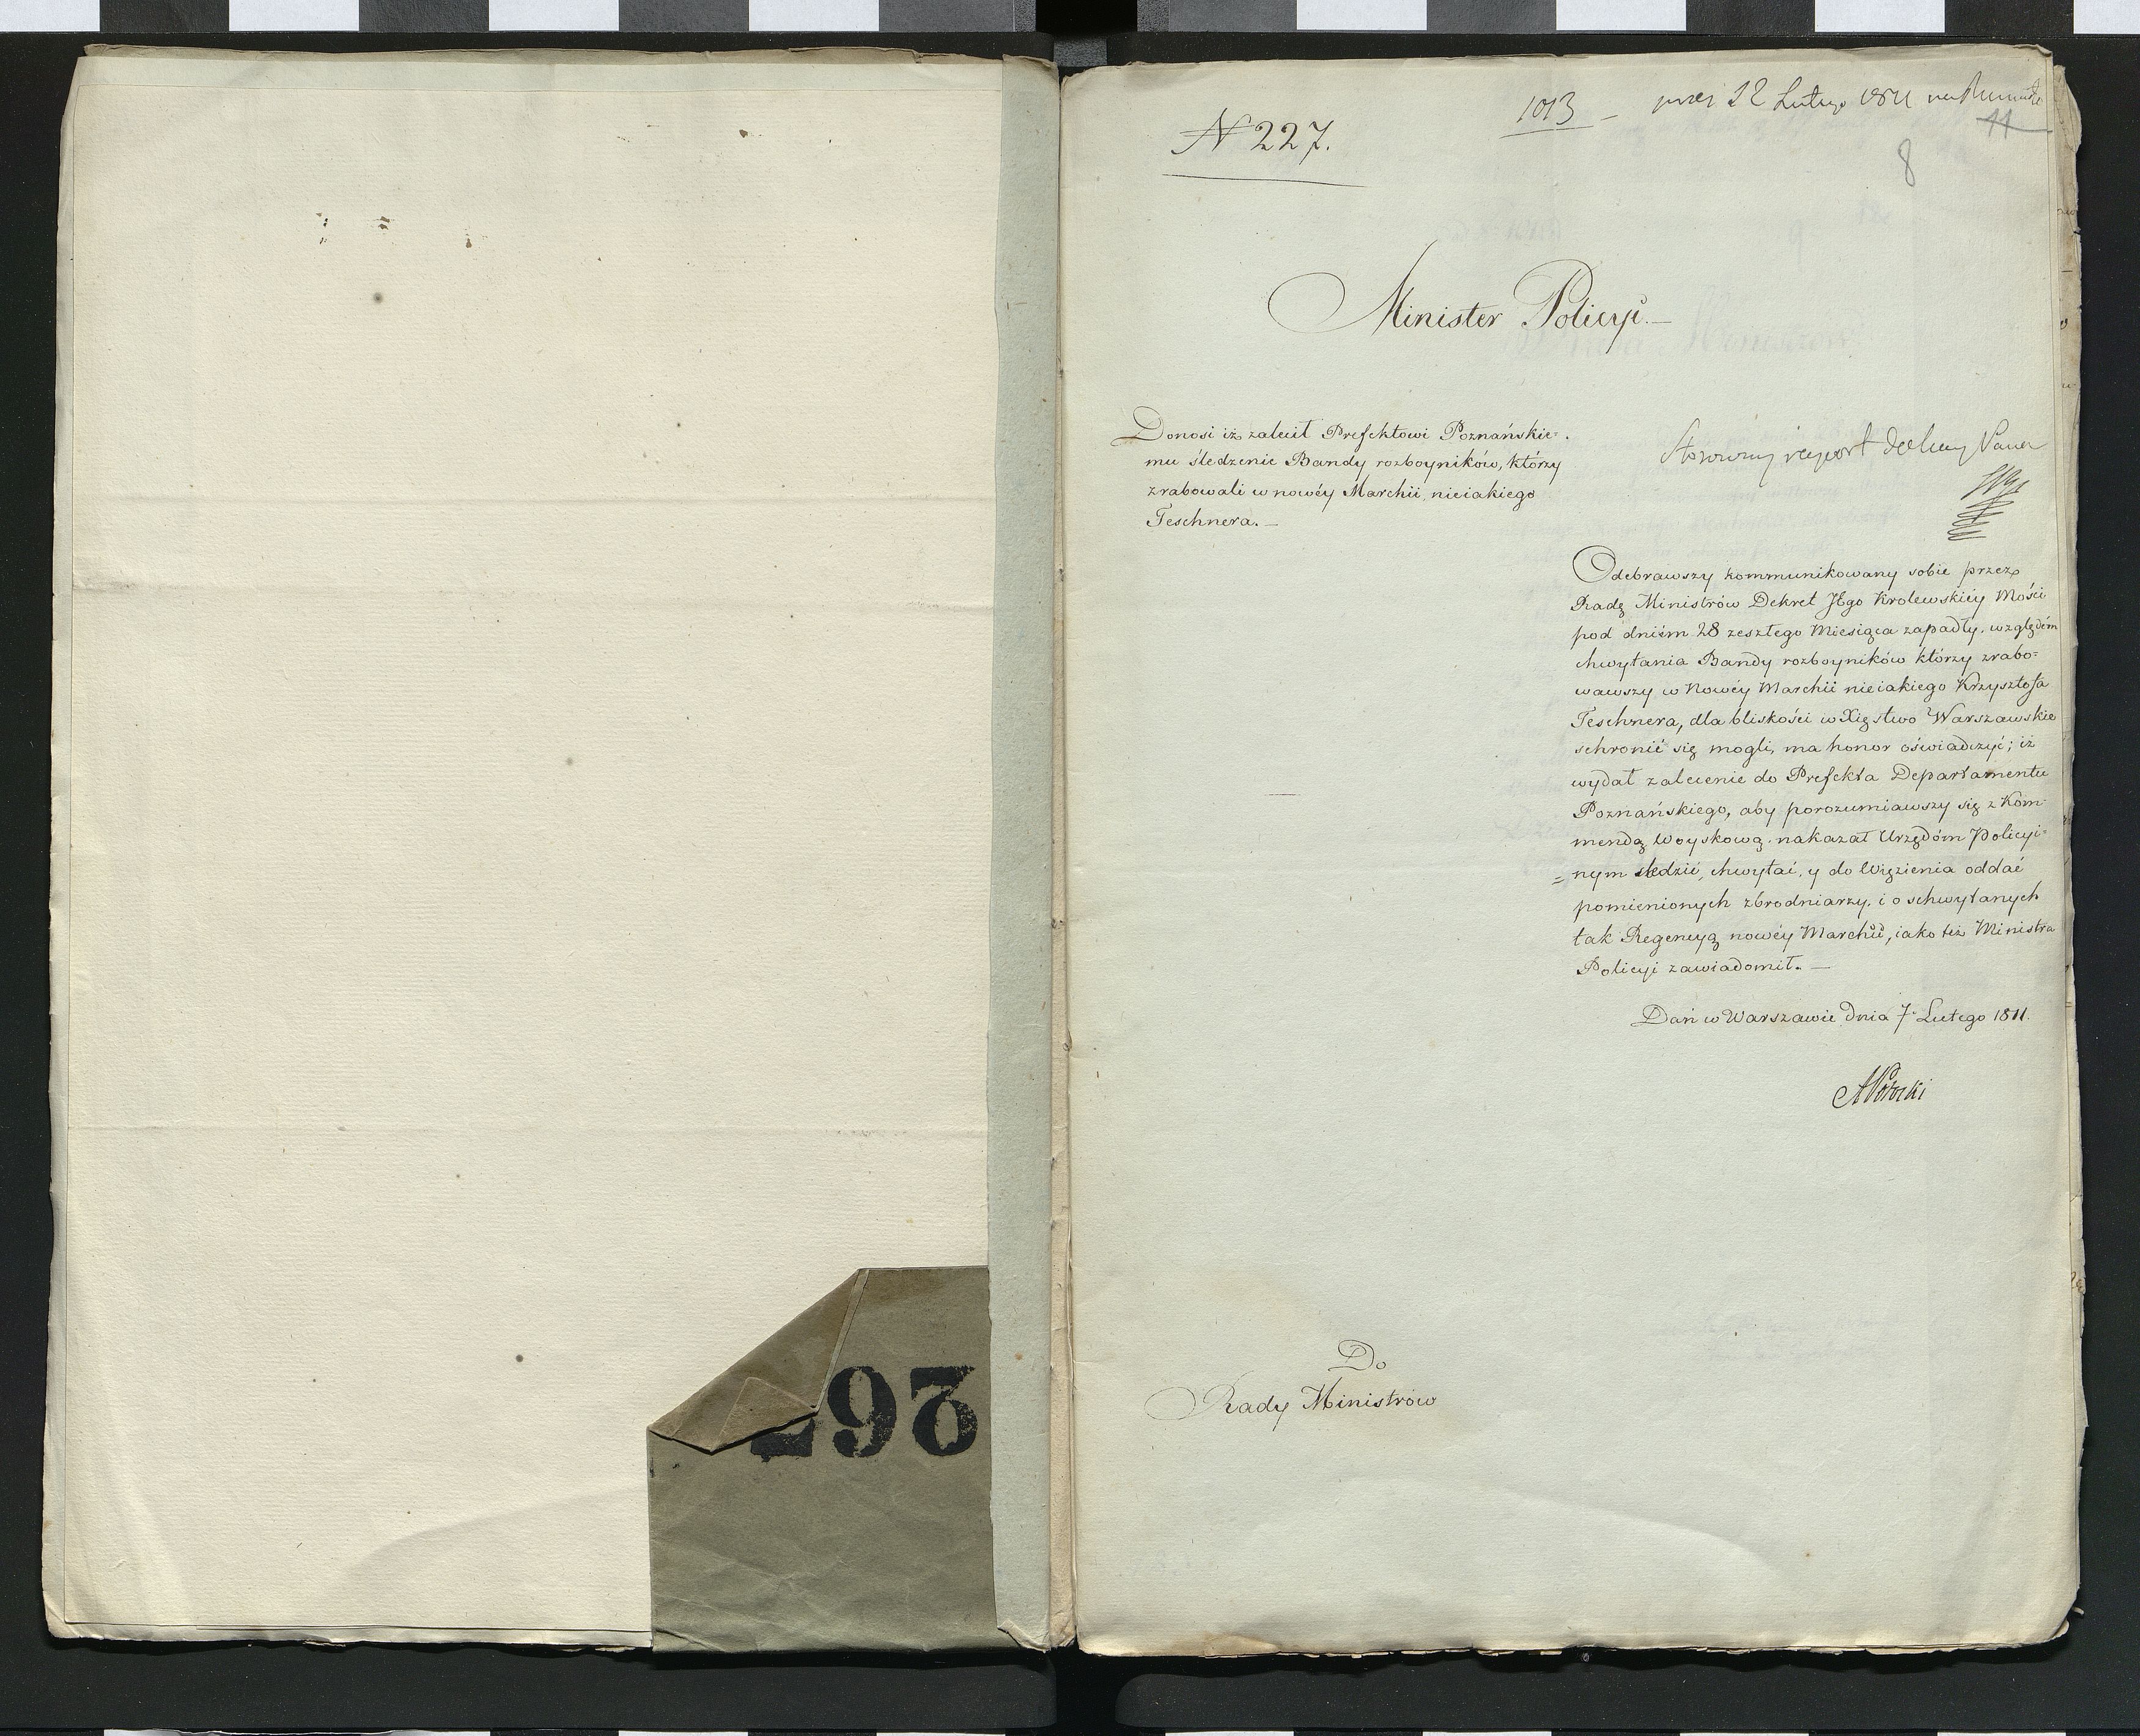 N 227.
1013 — 12 Lutego 1811
11
8
Minister Policyi.—
Donosi iż zalecił Prefektowi Poznańskie=
mu śledzenie Bandy rozboyników, którzy
zrabowali w nowéy Marchii, nieiakiego
Teschnera.—
Stosowny raport
Odebrawszy kommunikowany sobie przez
Radę Ministrów Dekret JEgo Krolewskiéy Mości
pod dniém 28 zeszłego Miesiąca zapadły, względém
chwytania Bandy rozboyników którzy zrabo=
wawszy w Nowéy Marchii nieiakiego Krzysztofa
Teschnera, dla bliskości w Xięstwo Warszawskie
schronić się mogli, ma honor oświadczyć; iż
wydał zalecenie do Prefekta Departamentu
Poznańskiego, aby porozumiawszy się z Kom=
mendą Woyskową, nakazał Urzędóm Policyi=
=nym śledzić, chwytać, y do Więzienia oddać
pomienionych zbrodniarzy, i o schwytanych
tak Regencyą nowéy Marchii, iako też Ministra
Policyi zawiadomił.—
Dań w Warszawie dnia 7 Lutego 1811.
APotocki
Do
Rady Ministrów
267